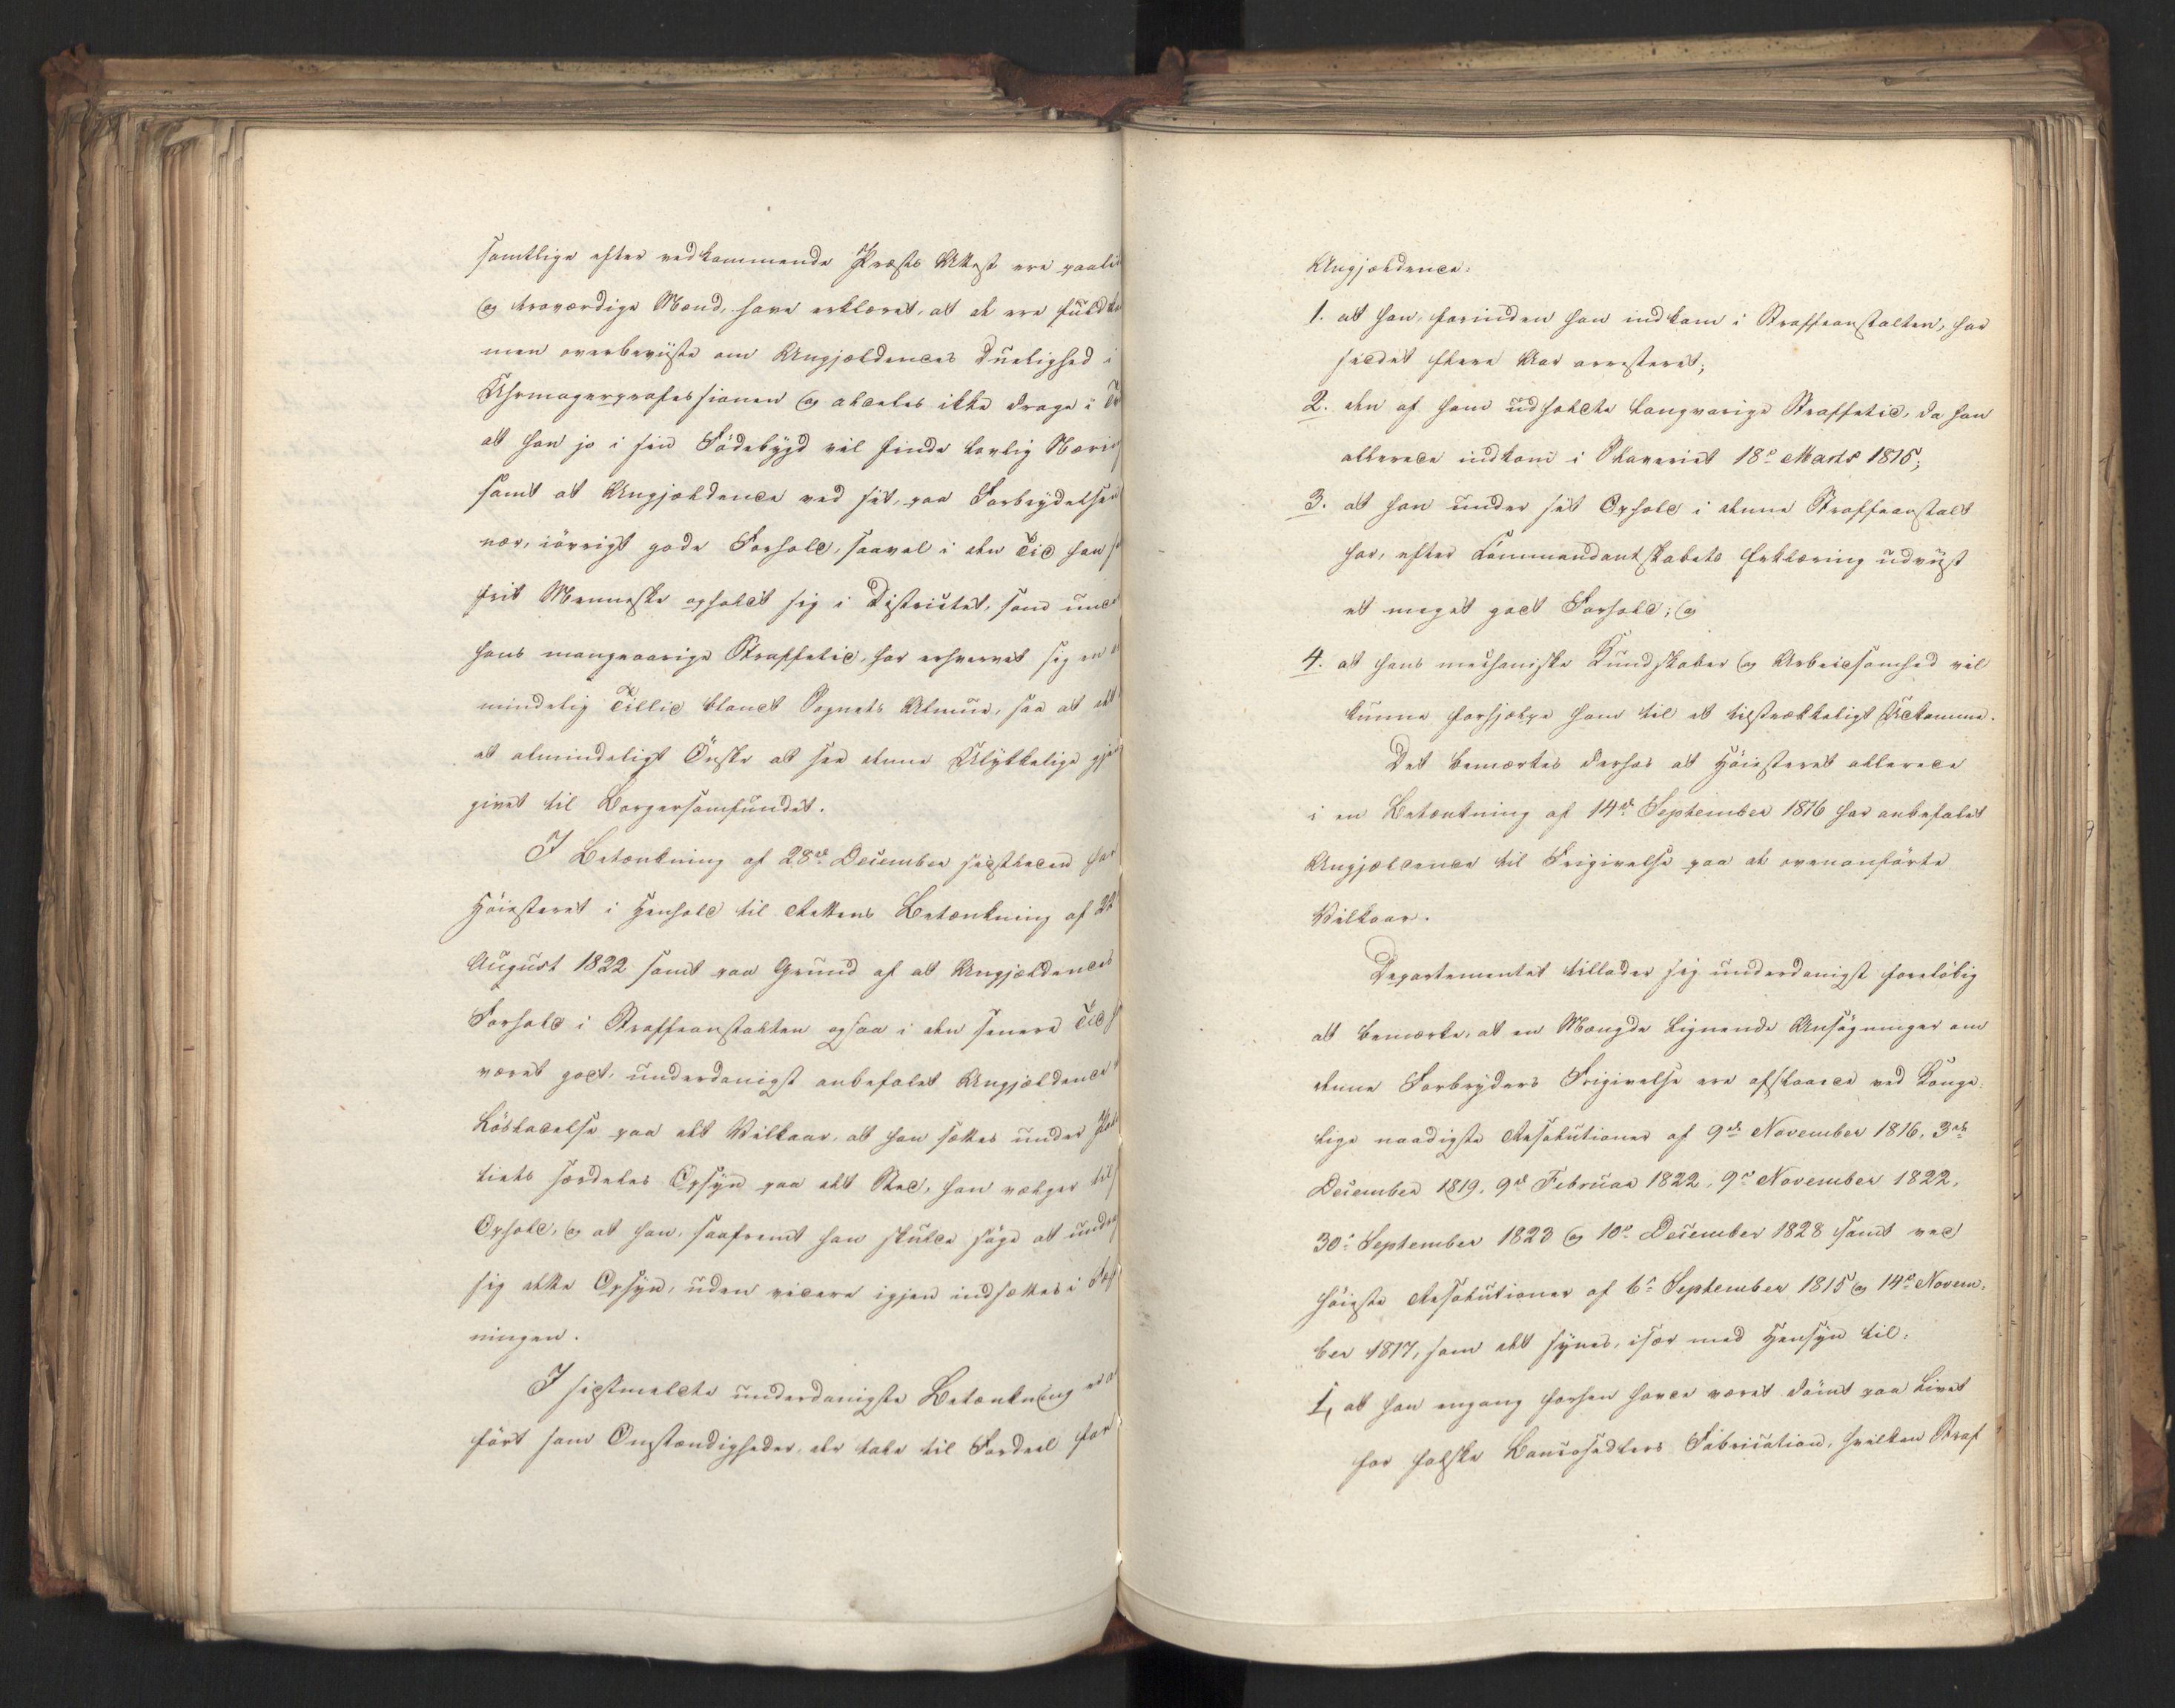 samtlige efter vedkommende Præsts Attest ere paali
og troværdige Mænd, have erklæret, at de ere fuldko
men overbeviiste om Angjældendes Duelighed i
Uhrmagerprofessionen og aldeles ikke drage i Tv
at han jo i sin Födebygd vil finde lovlig Nærin
samt at Angjældende ved sit, paa Forbrydelsen
nær, iövrigt gode Forhold, saavel i den Tid han s
frit Menneske opholdt sig i Districtet, som unde
hans mangeaarige Straffetid, har erhvervet sig en a
mindelig Tillid blandt Sognets Almue, saa at det
et almindeligt Önske at see denne Ulykkelige gjen
givet til Borgersamfundet.
I Betænkning af 28de December sidstleden har
Höiesteret i Henhold til Rettens Betænkning af 22
August 1822 samt paa Grund af at Angjældendes
Forhold i Straffeanstalten ogsaa i den senere Tid h
været godt, underdanigst anbefalet Angjældende
Lösladelse paa det Vilkaar, at han sættes under Poli
tiets særdeles Opsyn paa det Sted, han vælger til
Ophold, og at han, saafremt han skulde söge at undra
sig dette Opsyn, uden videre igjen indsættes i Fæst
ningen.
I sidstmeldte underdanigste Betænkning er an
fört som Omstændigheder, der tale til Fordeel for
Angjældende:
1. at han, forinden han indkom i Straffeanstalten, har
siddet flere Aar arresteret;
2. den af ham udholdte langvarige Straffetid, da han
allerede indkom i Slaveriet 18de Marts 1815;
3. at han under sit Ophold i denne Straffeanstalt
har, efter Commandantskabets Erklæring udviist
et meget godt Forhold; og
4. at hans mechaniske Kundskaber og Arbeidsomhed vil
kunne forhjælpe ham til et tilstrækkeligt Udkomme.
Det bemærkes derhos at Höiesteret allerede
i en Betænkning af 14de September 1816 har anbefalet
Angjældende til Frigivelse paa de ovenanförte
Vilkaar.
Departementet tillader sig underdanigst foreløbig
at bemærke, at en Mængde lignende Ansögninger om
denne Forbryders Frigivelse ere afslaaede ved Konge-
lige naadigste Resolutioner af 9de November 1816, 3die
December 1819, 9de Februar 1822, 9de November 1822,
30te September 1823 og 10de December 1828 samt ved
höieste Resolutioner af 6te September 1815 og 14de Novem-
ber 1817, som det synes, især med Hensyn til:
1, at han engang forhen havde været dömt paa Livet
for falske Bancosedlers Fabrication, hvilken Straf